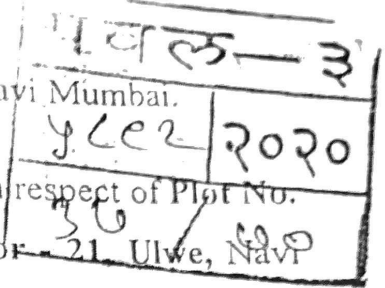 पवल - ३
avi Mumbai.
५८९२ २०२०
respect of Plot No.
or - 21, Ulwe, Navi